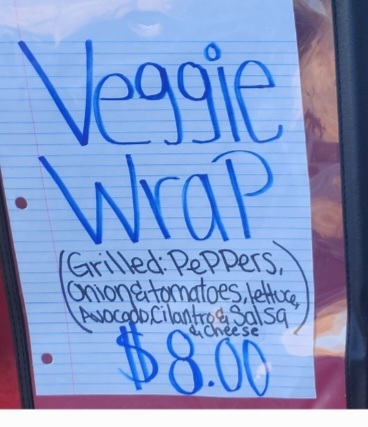 Veggie
Wrap
(Grilled: PePPers,
Onion&tomatoes, lettuce,
Avocado, Cilantro & Salsa
& cheese)
$8.00